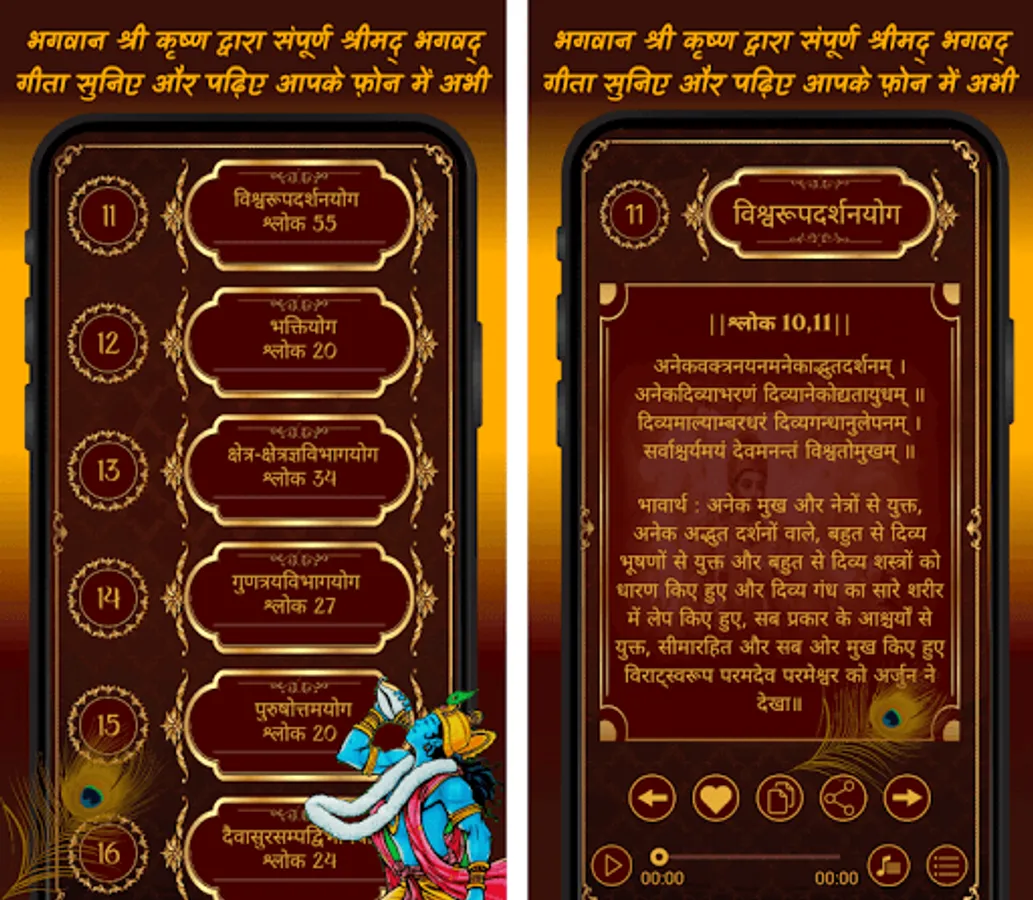 भगवान श्री कृष्ण द्वारा संपूर्ण श्रीमद् भगवद्
गीता सुनिए और पढ़िए आपके फ़ोन में अभी
11
विश्वरूपदर्शनयोग
श्लोक 55
12
भक्तियोग
श्लोक 20
13
क्षेत्र-क्षेत्रज्ञविभागयोग
श्लोक 34
14
गुणत्रयविभागयोग
श्लोक 27
15
पुरुषोत्तमयोग
श्लोक 20
16
श्लोक 24
भगवान श्री कृष्ण द्वारा संपूर्ण श्रीमद् भगवद्
गीता सुनिए और पढ़िए आपके फ़ोन में अभी
11
विश्वरूपदर्शनयोग
||श्लोक 10,11||
अनेकवक्त्रनयनमनेकाद्भुतदर्शनम् ।
अनेकदिव्याभरणं दिव्यानेकोद्यतायुधम् ॥
दिव्यमाल्याम्बरधरं दिव्यगन्धानुलेपनम् ।
सर्वाश्चर्यमयं देवमनन्तं विश्वतोमुखम् ॥
भावार्थ : अनेक मुख और नेत्रों से युक्त,
अनेक अद्भुत दर्शनों वाले, बहुत से दिव्य
भूषणों से युक्त और बहुत से दिव्य शस्त्रों को
धारण किए हुए और दिव्य गंध का सारे शरीर
में लेप किए हुए, सब प्रकार के आश्चर्यों से
युक्त, सीमारहित और सब ओर मुख किए हुए
विराट्स्वरूप परमदेव परमेश्वर को अर्जुन ने
देखा॥
00:00
00:00